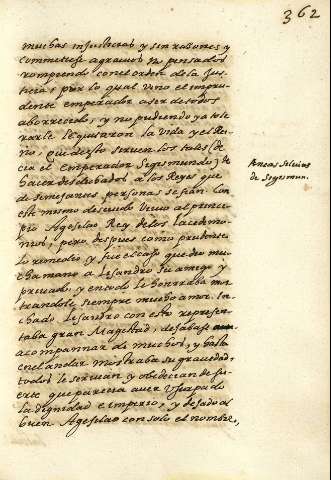 362
muchas injusticias y sin razones y
commetiose agravios no pensados
rompiendo con el orden de la Jus-
ticia; por lo qual vino el impru-
dente emperador a ser de todos
aborrecido, y no pudiendo ya tole-
rarle le quitaron la vida y el Rei-
no, que desto sirven los tales (de-
cia el Emperador Segismundo) de
hacer desdichados a los Reyes que
de semejantes personas se fian. Con
este mismo descuido vivio al princi-
pio Agesilao Rey de los Lacedemo-
nios, pero despues como prudente
lo conocio, y fue el caso que dio mu-
cha mano a Lisandro su amigo y
privado, y en todo le honrraba mos-
trandole siempre mucho amor. Hin-
chado Lisandro con esto represen-
taba gran Magestad, dejabase
acompannar de muchos, y hasta
en el andar mostraba su gravedad,
todos le servian y obedecian de su-
erte que parecia aver Usurpado
la dignidad e imperio, y dejado al
buen Agesilao con solo el nombre,
Aeneas Silvius
de Segismun.